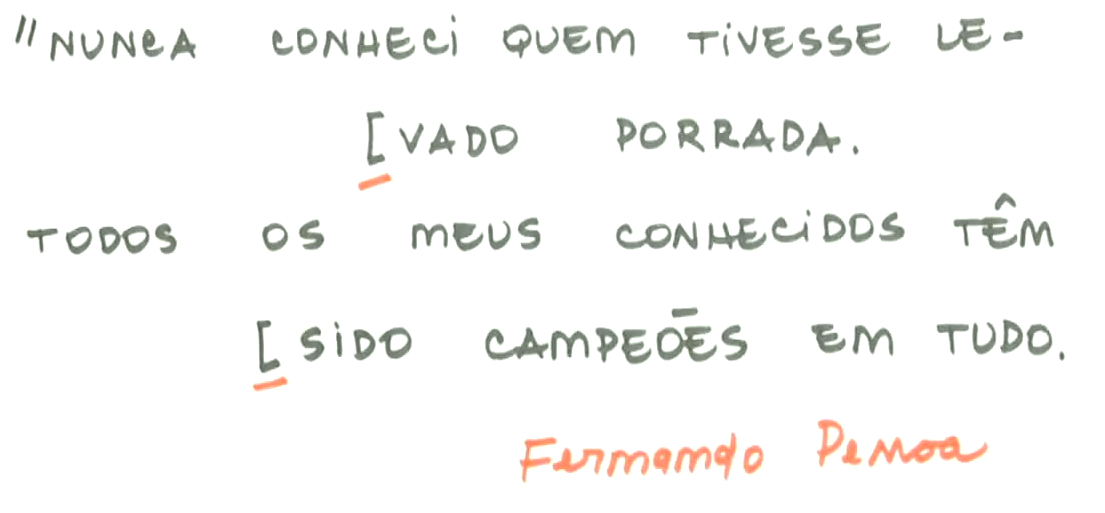 "NUNCA CONHECI QUEM TIVESSE LE-
[VADO PORRADA.
TODOS OS MEUS CONHECIDOS TÊM
[SIDO CAMPEÕES EM TUDO.
Fernando Pessoa